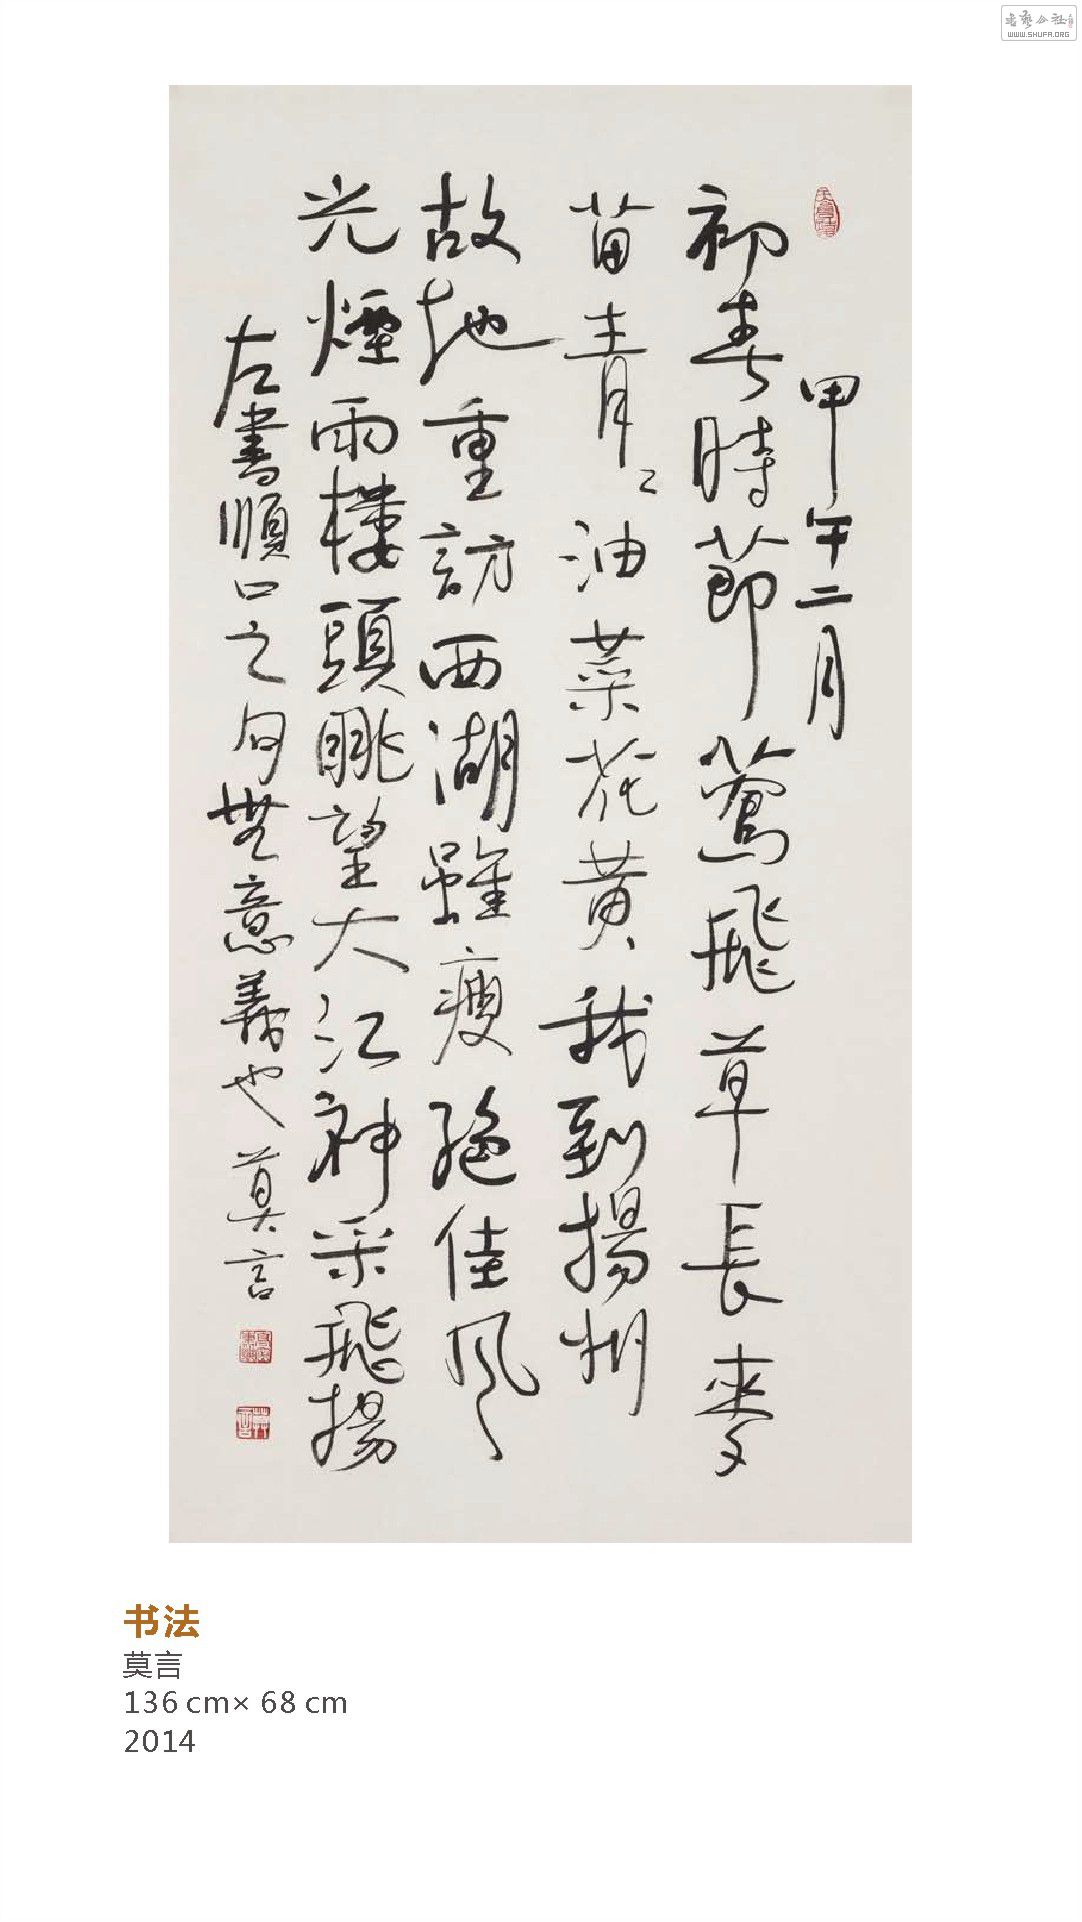 甲午二月
初春時節鶯飛草長麥
苗青々油菜花黄我到揚州
故地重訪西湖雖瘦絕佳風
光煙雨樓頭眺望大江神采飛揚
左書順口之句無意義也莫言
书法
莫言
136 cm× 68 cm
2014
WWW.SHUFA.ORG